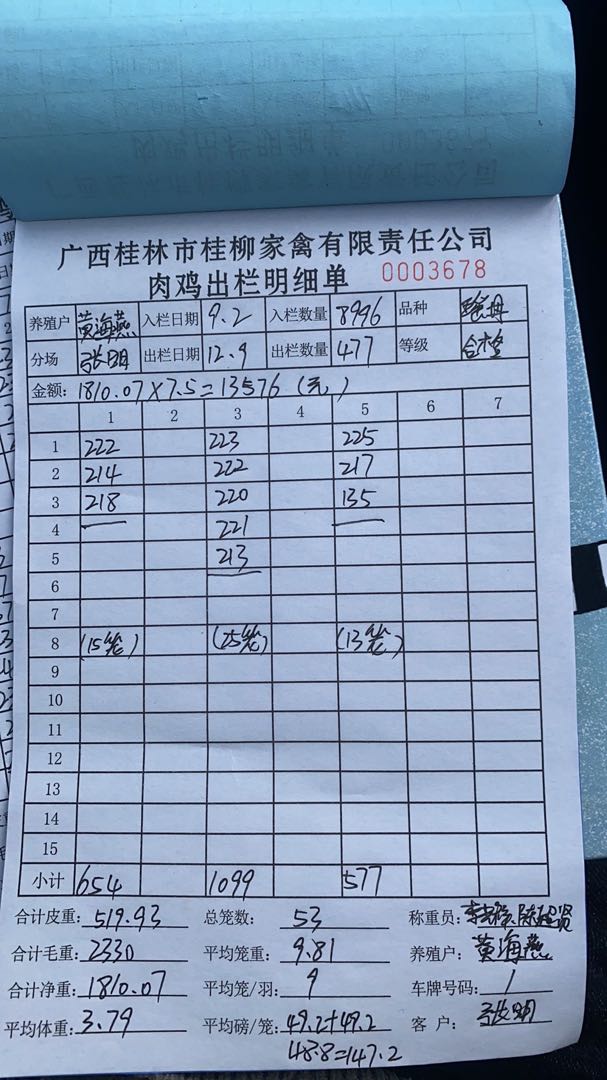 广西桂林市桂柳家禽有限责任公司
肉鸡出栏明细单 0003678
养殖户 黄海燕 入栏日期 9.2 入栏数量 8996 品种
分场 张明 出栏日期 12.9 出栏数量 477 等级 合格
金额: 1810.07×7.5=13576(元)
1 2 3 4 5 6 7
1 222 223 225
2 214 222 217
3 218 220 135
4 221
5 213
6
7
8 (15笼) (25笼) (13笼)
9
10
11
12
13
14
15
小计 654 1099 577
合计皮重: 519.93 总笼数: 53 称重员:
合计毛重: 2330 平均笼重: 9.81 养殖户: 黄海燕
合计净重: 1810.07 平均笼/羽: 9 车牌号码: 1
平均体重: 3.79 平均磅/笼: 49.2+49.2 客户: 张明
48.8=147.2